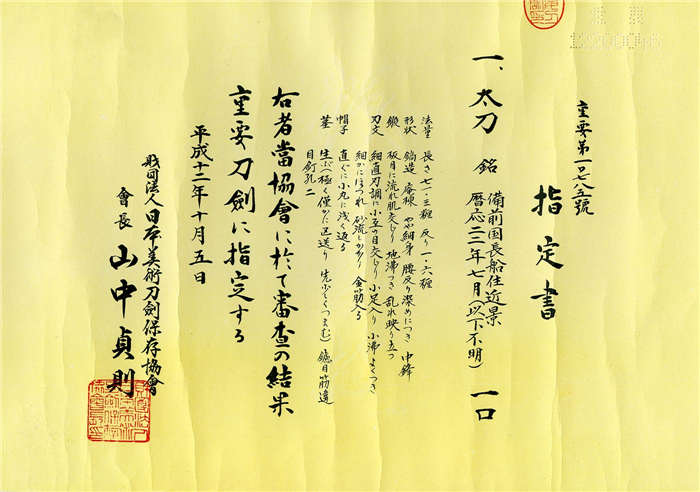 重要第一〇七八五號
指定書
一、太刀 銘 備前国長船住近景 暦応二二年七月(以下不明) 一口
法量 長さ七一・三糎 反り一・六糎
形状 鎬造 庵棟 やや細身 腰反り深めにつき 中鋒
鍛 板目に流れ肌交じり 地沸つき 乱れ映り立つ
刃文 細直刃調に小互の目交じり 小足入り 小沸よくつき
細かにほつれ 砂流しかかり 金筋入る
帽子 直ぐに小丸に浅く返る
茎 生ぶ(極く僅かに区送り 先少しくつまむ) 鑢目筋違
目釘孔二
右者當協會に於て審査の結果
重要刀劍に指定する
平成十二年十月五日
財団法人日本美術刀劍保存協會
會長 山中貞則